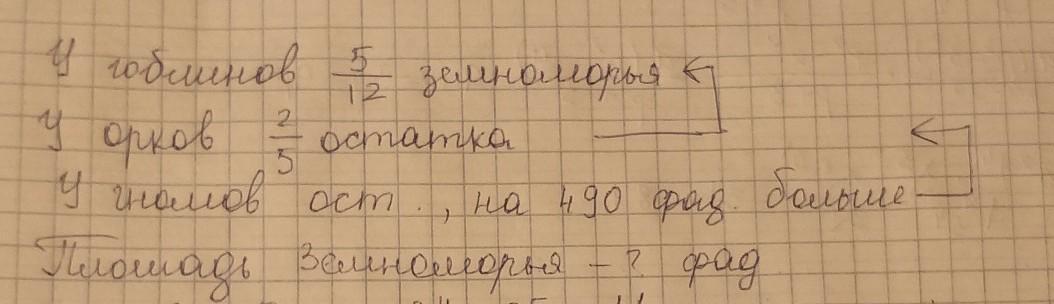 У гоблинов 5/12 Земноморья
У орков 2/5 остатка
У гномов ост., на 490 фад. больше
Площадь Земноморья - ? фад